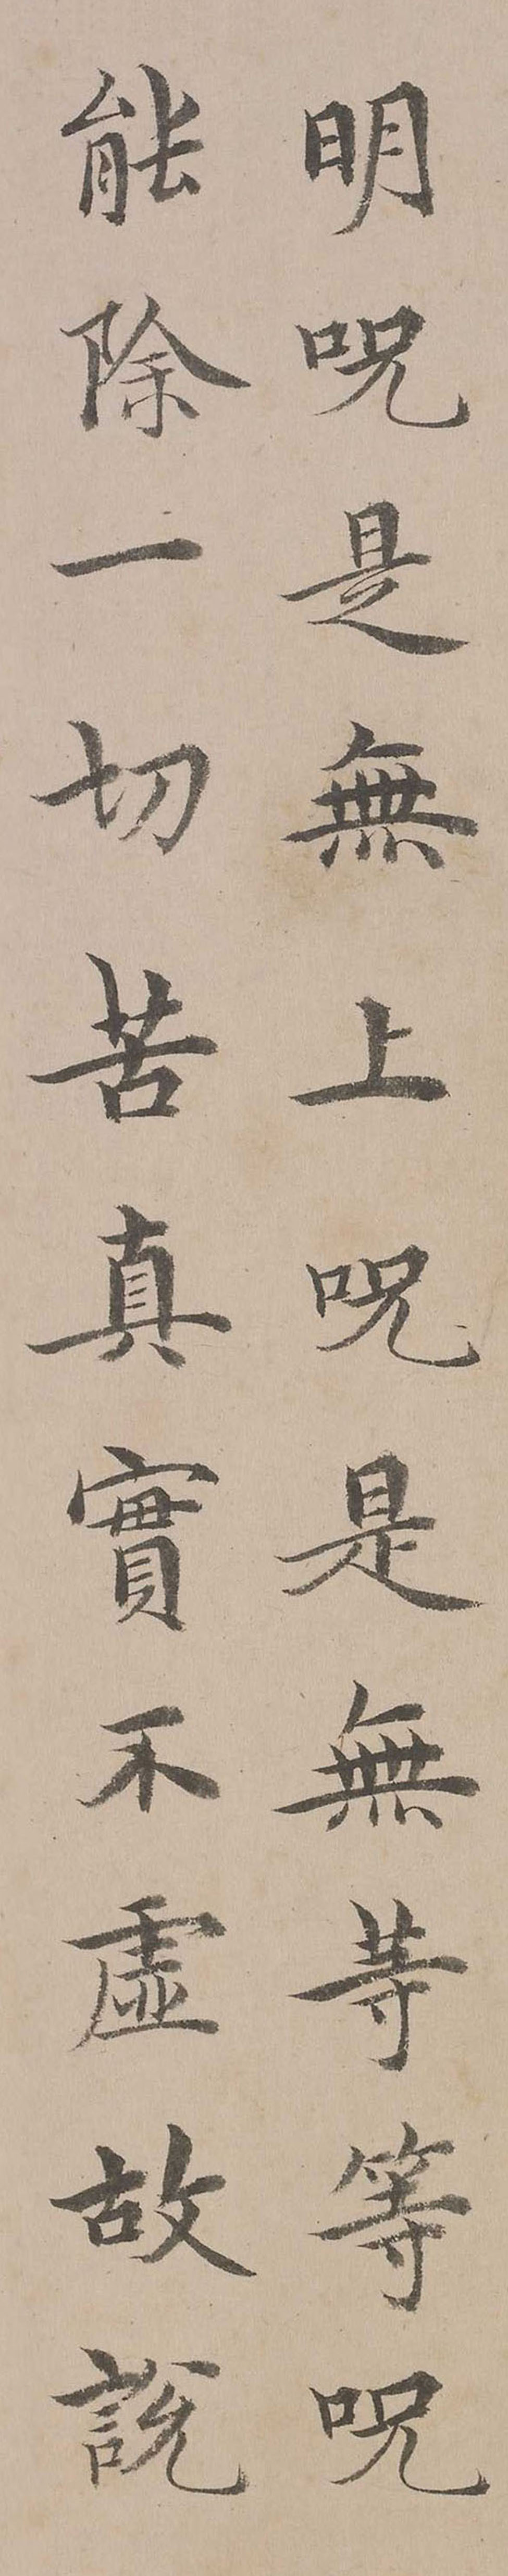 明呪是無上呪是無等等呪
能除一切苦真實不虛故說